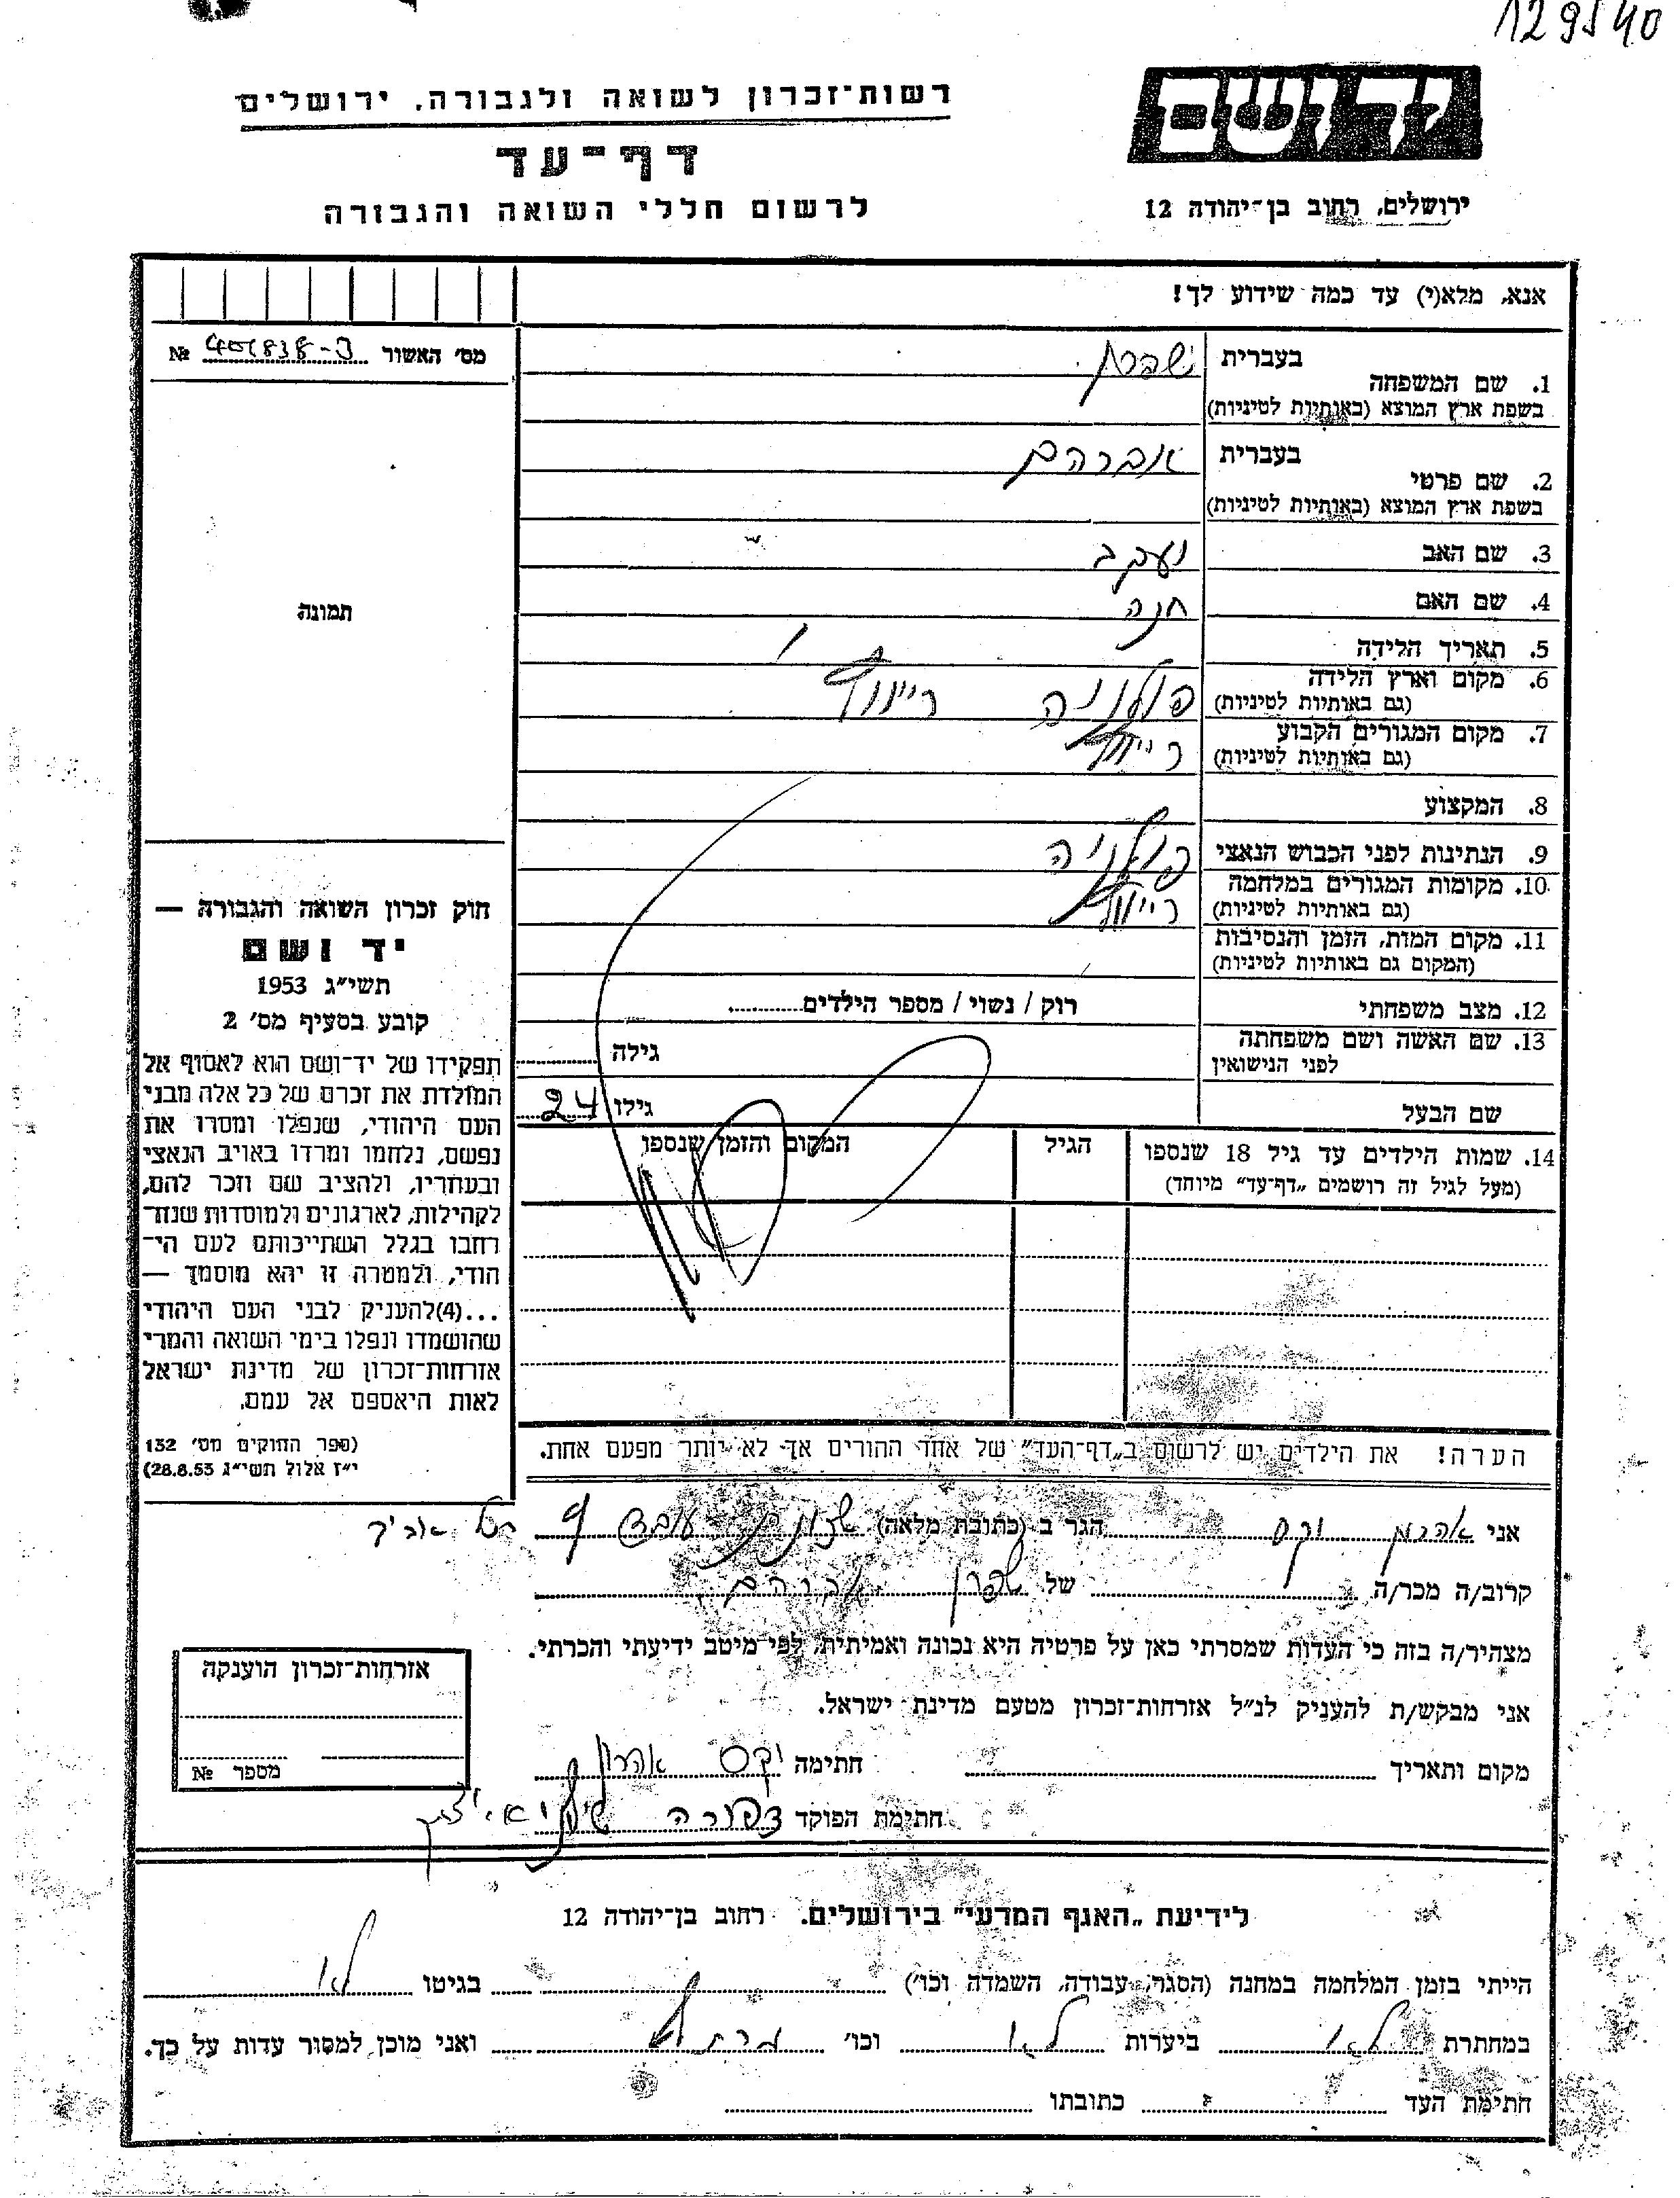 129540
יד ושם
רשות־זכרון לשואה ולגבורה. ירושלים
דף־עד
לרשום חללי השואה והגבורה
ירושלים, רחוב בן־יהודה 12
אנא, מלא(י) עד כמה שידוע לך!
מס׳ האשור №
1. שם המשפחה
בעברית
בשפת ארץ המוצא (באותיות לטיניות)
2. שם פרטי
בעברית אברהם
בשפת ארץ המוצא (באותיות לטיניות)
3. שם האב יעקב
4. שם האם חנה
5. תאריך הלידה
6. מקום וארץ הלידה פולניה
(גם באותיות לטיניות)
7. מקום המגורים הקבוע
(גם באותיות לטיניות)
8. המקצוע
9. הנתינות לפני הכבוש הנאצי פולניה
10. מקומות המגורים במלחמה
(גם באותיות לטיניות)
11. מקום המות, הזמן והנסיבות
(המקום גם באותיות לטיניות)
12. מצב משפחתי רוק / נשוי / מספר הילדים
13. שם האשה ושם משפחתה גילה
לפני הנישואין
שם הבעל גילו 24
14. שמות הילדים עד גיל 18 שנספו הגיל המקום והזמן שנספו
(מעל לגיל זה רושמים „דף־עד״ מיוחד)
הערה! את הילדים יש לרשום ב„דף־העד״ של אחד ההורים אך לא יותר מפעם אחת.
תמונה
חוק זכרון השואה והגבורה —
יד ושם
תשי״ג 1953
קובע בסעיף מס׳ 2
תפקידו של יד־ושם הוא לאסוף אל
המולדת את זכרם של כל אלה מבני
העם היהודי, שנפלו ומסרו את
נפשם, נלחמו ומרדו באויב הנאצי
ובעוזריו, ולהציב שם וזכר להם,
לקהילות, לארגונים ולמוסדות שנח־
רחבו בגלל השתייכותם לעם הי־
הודי, ולמטרה זו יהא מוסמך —
...(4) להעניק לבני העם היהודי
שהושמדו ונפלו בימי השואה והמרי
אזרחות־זכרון של מדינת ישראל
לאות היאספם אל עמם.
(ספר החוקים מס׳ 132
י״ז אלול תשי״ג 28.8.53)
אני אהרון וקס הגר ב (כתובת מלאה) תל אביב
קרוב/ה מכר/ה של אברהם
מצהיר/ה בזה כי העדות שמסרתי כאן על פרטיה היא נכונה ואמיתית, לפי מיטב ידיעתי והכרתי.
אני מבקש/ת להעניק לנ״ל אזרחות־זכרון מטעם מדינת ישראל.
מקום ותאריך חתימה וקס אהרון
חתימת הפוקד צפורה
אזרחות־זכרון הוענקה
מספר №
לידיעת „האגף המדעי״ בירושלים. רחוב בן־יהודה 12
הייתי בזמן המלחמה במחנה (הסגר, עבודה, השמדה וכו׳) בגיטו לא
במחתרת לא ביערות לא וכו׳ ואני מוכן למסור עדות על כך.
חתימת העד כתובתו